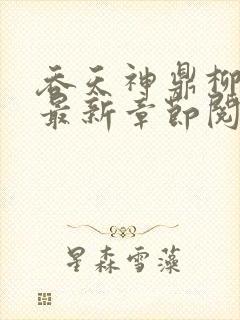 吞天神鼎柳
最新章节阅
星森雪藻